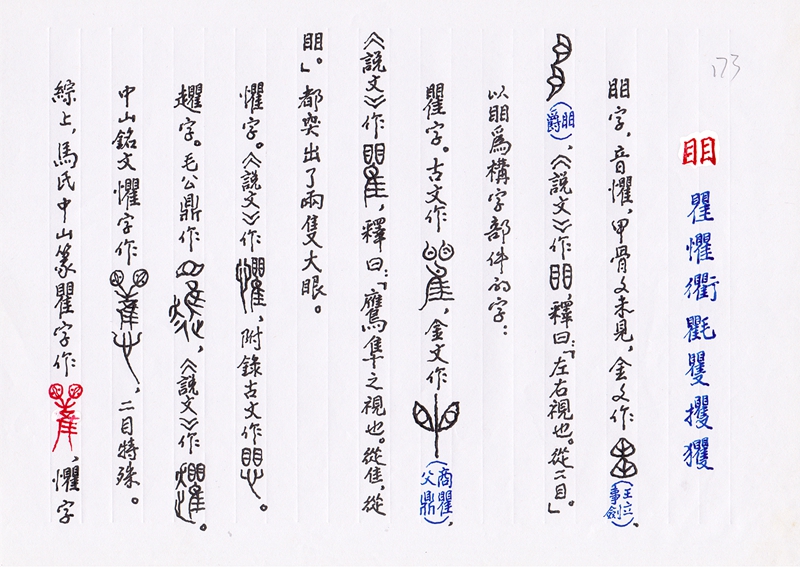 173
䀠 瞿 懼 衢 氍 矍 攫 玃
䀠字，音懼，甲骨文未見，金文作（王立事劍）
（䀠爵），《說文》作䀠，釋曰：「左右視也。從二目。」
以䀠爲構字部件的字：
瞿字。古文作，金文作（商瞿父鼎），
《說文》作瞿，釋曰：「鷹隼之視也。從隹，從
䀠。」。都突出了兩隻大眼。
懼字。《說文》作懼，附錄古文作。
趯字。毛公鼎作，《說文》作。
中山銘文懼字作，二目特殊。
綜上，馬氏中山篆瞿字作，懼字